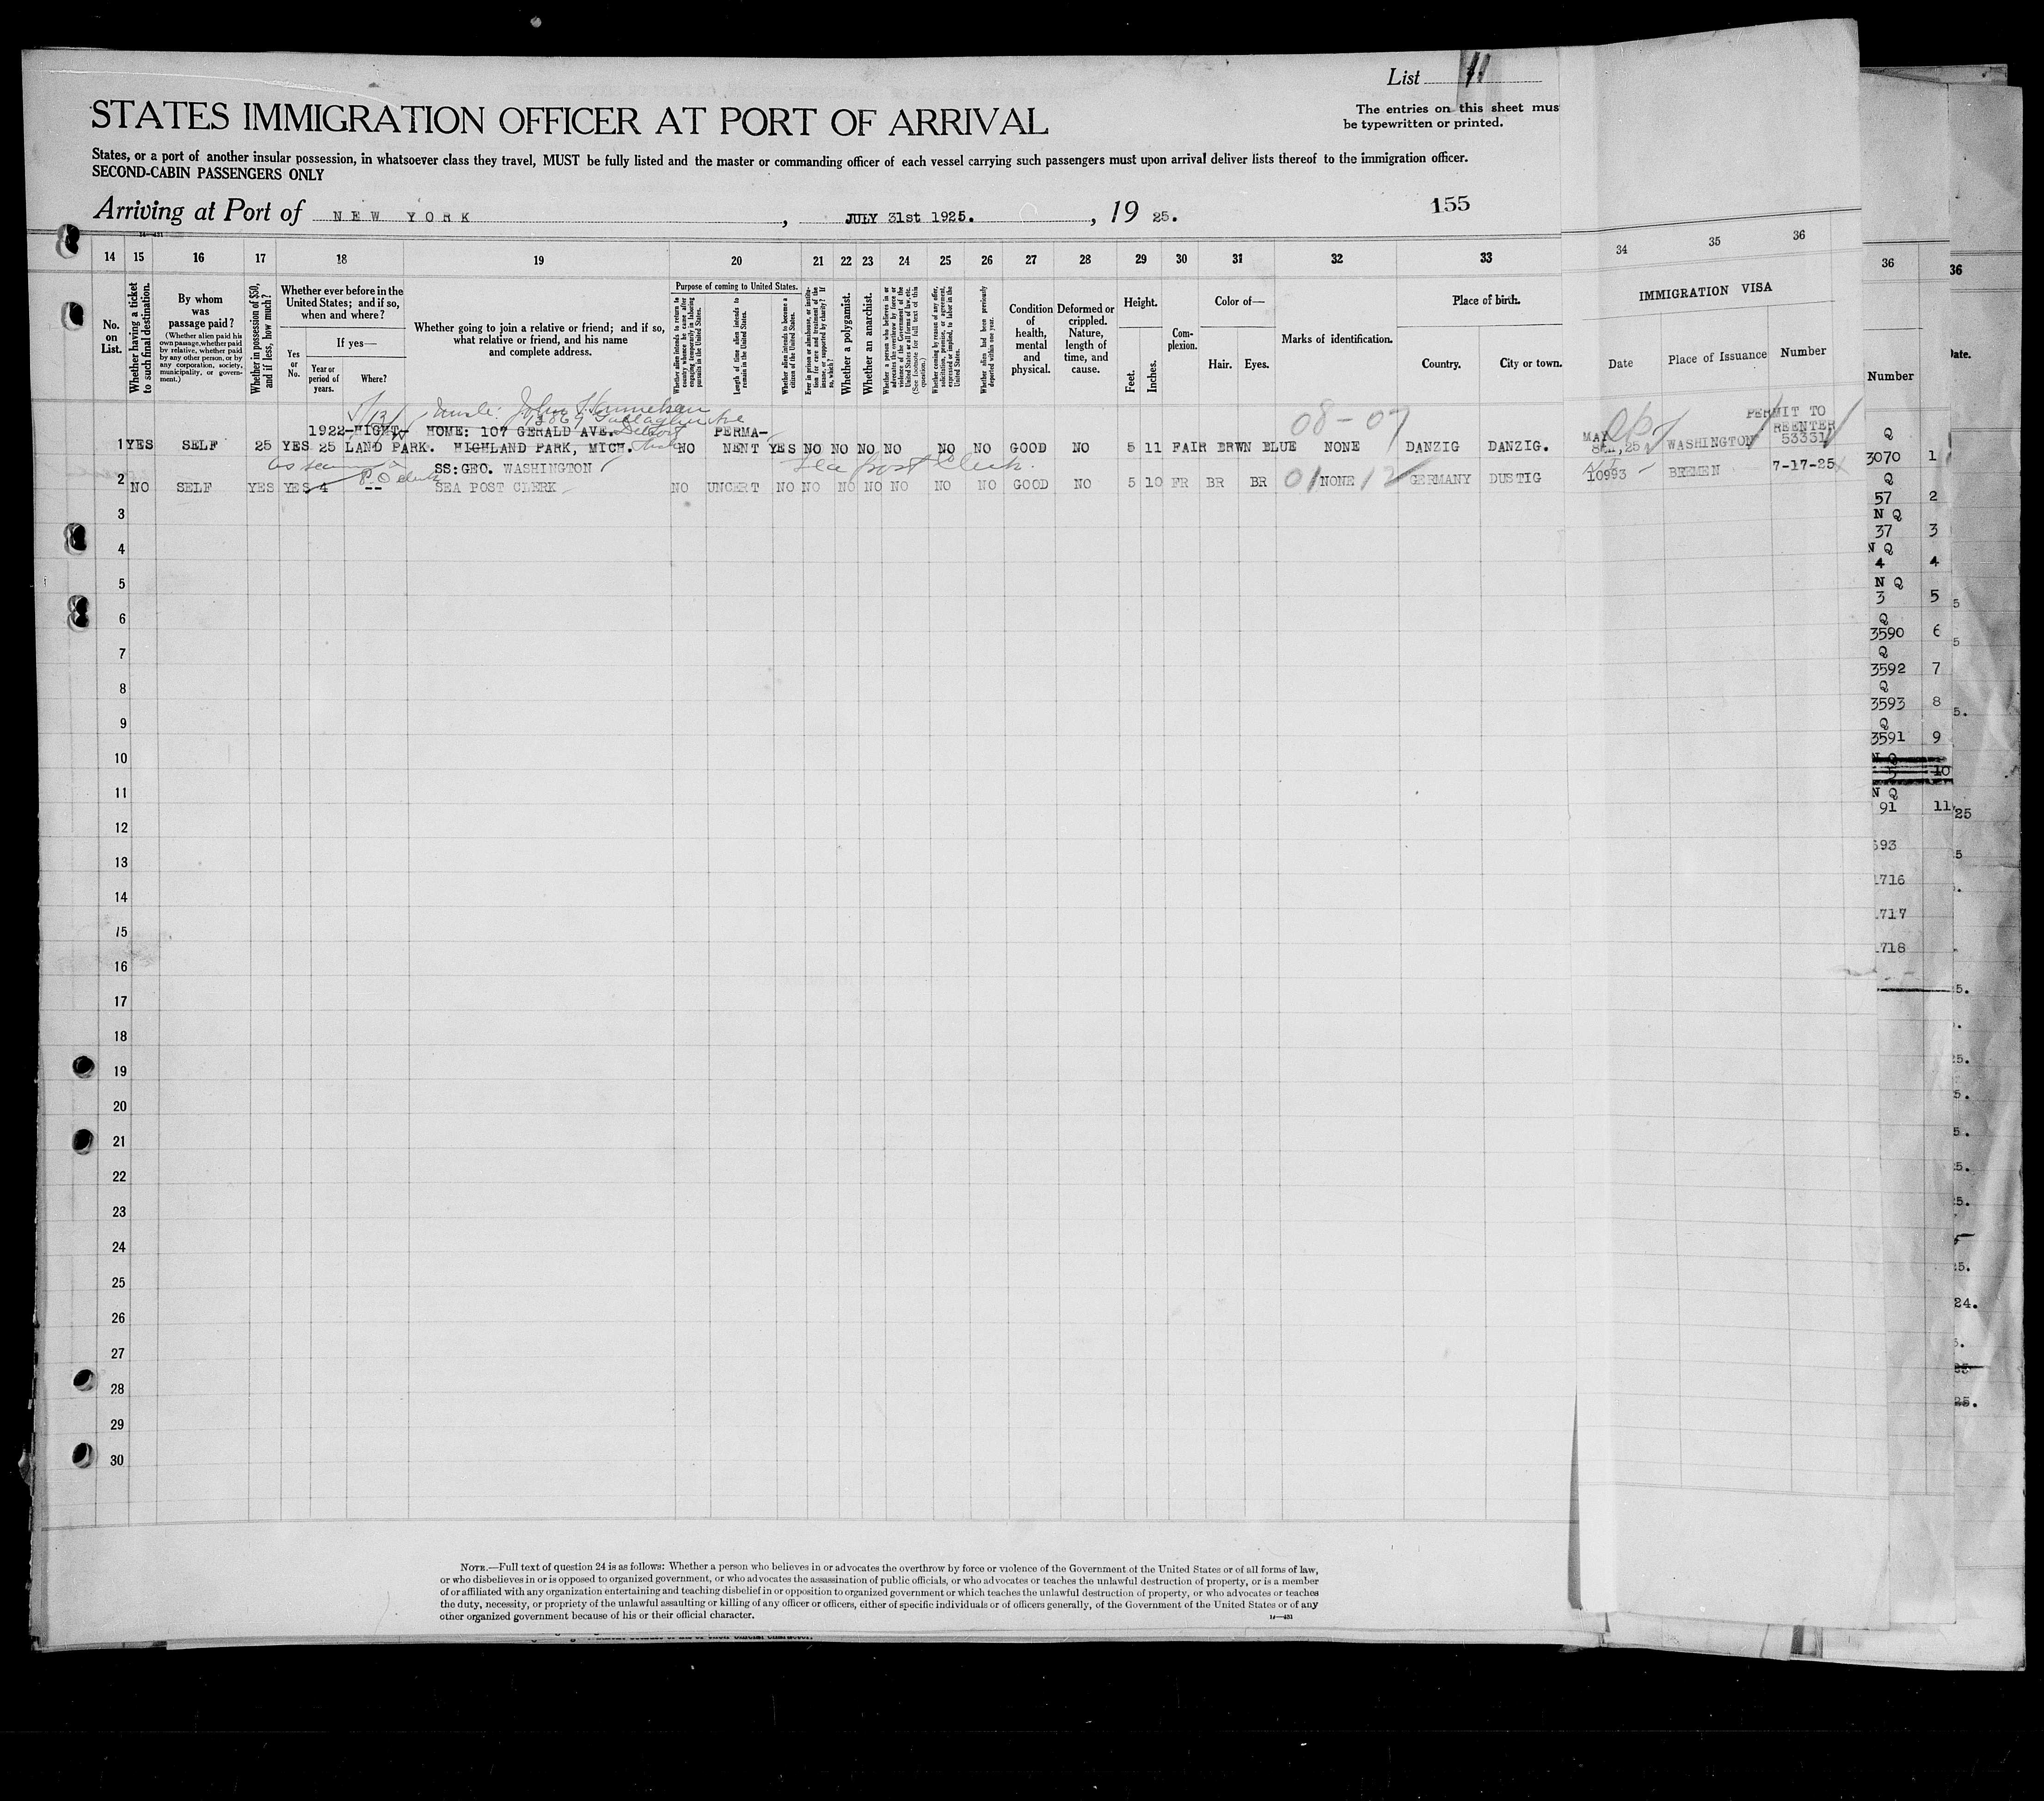 List 11
The entries on this sheet mus
be typewritten or printed.
STATES IMMIGRATION OFFICER AT PORT OF ARRIVAL
States, or a port of another insular possession, in whatsoever class they travel, MUST be fully listed and the master or commanding officer of each vessel carrying such passengers must upon arrival deliver lists thereof to the immigration officer.
SECOND-CABIN PASSENGERS ONLY
Arriving at Port of NEW YORK, JULY 31st 1925., 19 25.
155
14 15 16 17 18 19 20 21 22 23 24 25 26 27 28 29 30 31 32 33 34 35 36
No. on List.
Whether having a ticket to such final destination.
By whom was passage paid?
(Whether alien paid his own passage, whether paid by relative, whether paid by any other person, or by any corporation, society, municipality, or government.)
Whether in possession of $50, and if less, how much?
Whether ever before in the United States; and if so, when and where?
Yes or No.
If yes—
Year or period of years.
Where?
Whether going to join a relative or friend; and if so, what relative or friend, and his name and complete address.
Purpose of coming to United States.
Whether alien intends to return to country whence he came after engaging temporarily in laboring pursuits in the United States.
Length of time alien intends to remain in the United States.
Whether alien intends to become a citizen of the United States.
Ever in prison or almshouse, or institution for care and treatment of the insane, or supported by charity? If so, which?
Whether a polygamist.
Whether an anarchist.
Whether a person who believes in or advocates the overthrow by force or violence of the Government of the United States or all forms of law, etc. (See footnote for full text of this question.)
Whether coming by reason of any offer, solicitation, promise, or agreement, expressed or implied, to labor in the United States.
Whether alien had been previously deported within one year.
Condition of health, mental and physical.
Deformed or crippled. Nature, length of time, and cause.
Height.
Feet. Inches.
Complexion.
Color of—
Hair. Eyes.
Marks of identification.
Place of birth.
Country. City or town.
IMMIGRATION VISA
Date Place of Issuance Number
Uncle: John
1922-HIGHT- HOME: 107 GERALD AVE. Detroit PERMA- 08-07 PERMIT TO REENTER
1 YES SELF 25 YES 25 LAND PARK. HIGHLAND PARK, MICH. NO NENT YES NO NO NO NO NO NO GOOD NO 5 11 FAIR BRWN BLUE NONE DANZIG DANZIG. MAY 8th, 25 WASHINGTON 53331
SS:GEO. WASHINGTON Sea Post Clerk.
2 NO SELF YES YES 4 -- SEA POST CLERK NO UNCERT NO NO NO NO NO NO NO GOOD NO 5 10 FR BR BR 01 NONE 12 GERMANY DUSTIG 10993 BREMEN 7-17-25
3
4
5
6
7
8
9
10
11
12
13
14
15
16
17
18
19
20
21
22
23
24
25
26
27
28
29
30
36
Number
Q
3070 1
Q
57 2
N Q
37 3
N Q
4 4
N Q
3 5
Q
3590 6
Q
3592 7
Q
3593 8
Q
3591 9
N Q
5 10
N Q
91 11
593
1716
1717
1718
36
Date.
NOTE.—Full text of question 24 is as follows: Whether a person who believes in or advocates the overthrow by force or violence of the Government of the United States or of all forms of law,
or who disbelieves in or is opposed to organized government, or who advocates the assassination of public officials, or who advocates or teaches the unlawful destruction of property, or is a member
of or affiliated with any organization entertaining and teaching disbelief in or opposition to organized government or which teaches the unlawful destruction of property, or who advocates or teaches
the duty, necessity, or propriety of the unlawful assaulting or killing of any officer or officers, either of specific individuals or of officers generally, of the Government of the United States or of any
other organized government because of his or their official character.
14—431